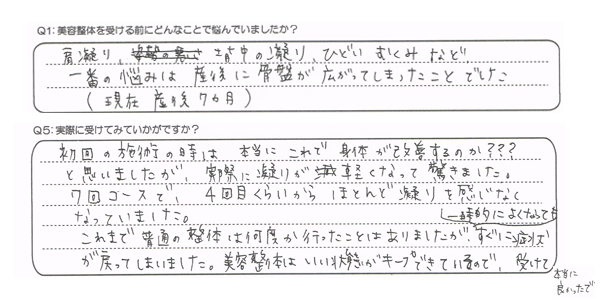 Q1:美容整体を受ける前にどんなことで悩んでいましたか?
肩凝り、姿勢の悪い 背中の凝り、ひどい むくみ など
一番の悩みは 産後に 骨盤が 広がってしまったこと でした
(現在 産後 7カ月)
Q5:実際に受けてみていかがですか?
初回の施術の時は 本当に これで 身体が改善するのか???
と思いましたが、実際に凝りが 軽くなって 驚きました。
7回コースで、4回目くらいから ほとんど凝りを感じなく
なっていました。
一時的によくなっても
これまで 普通の整体は何度か行ったことはありましたが、すぐに症状
が戻ってしまいました。美容整体は いい状態がキープできているので、受けて
本当に
良かったで